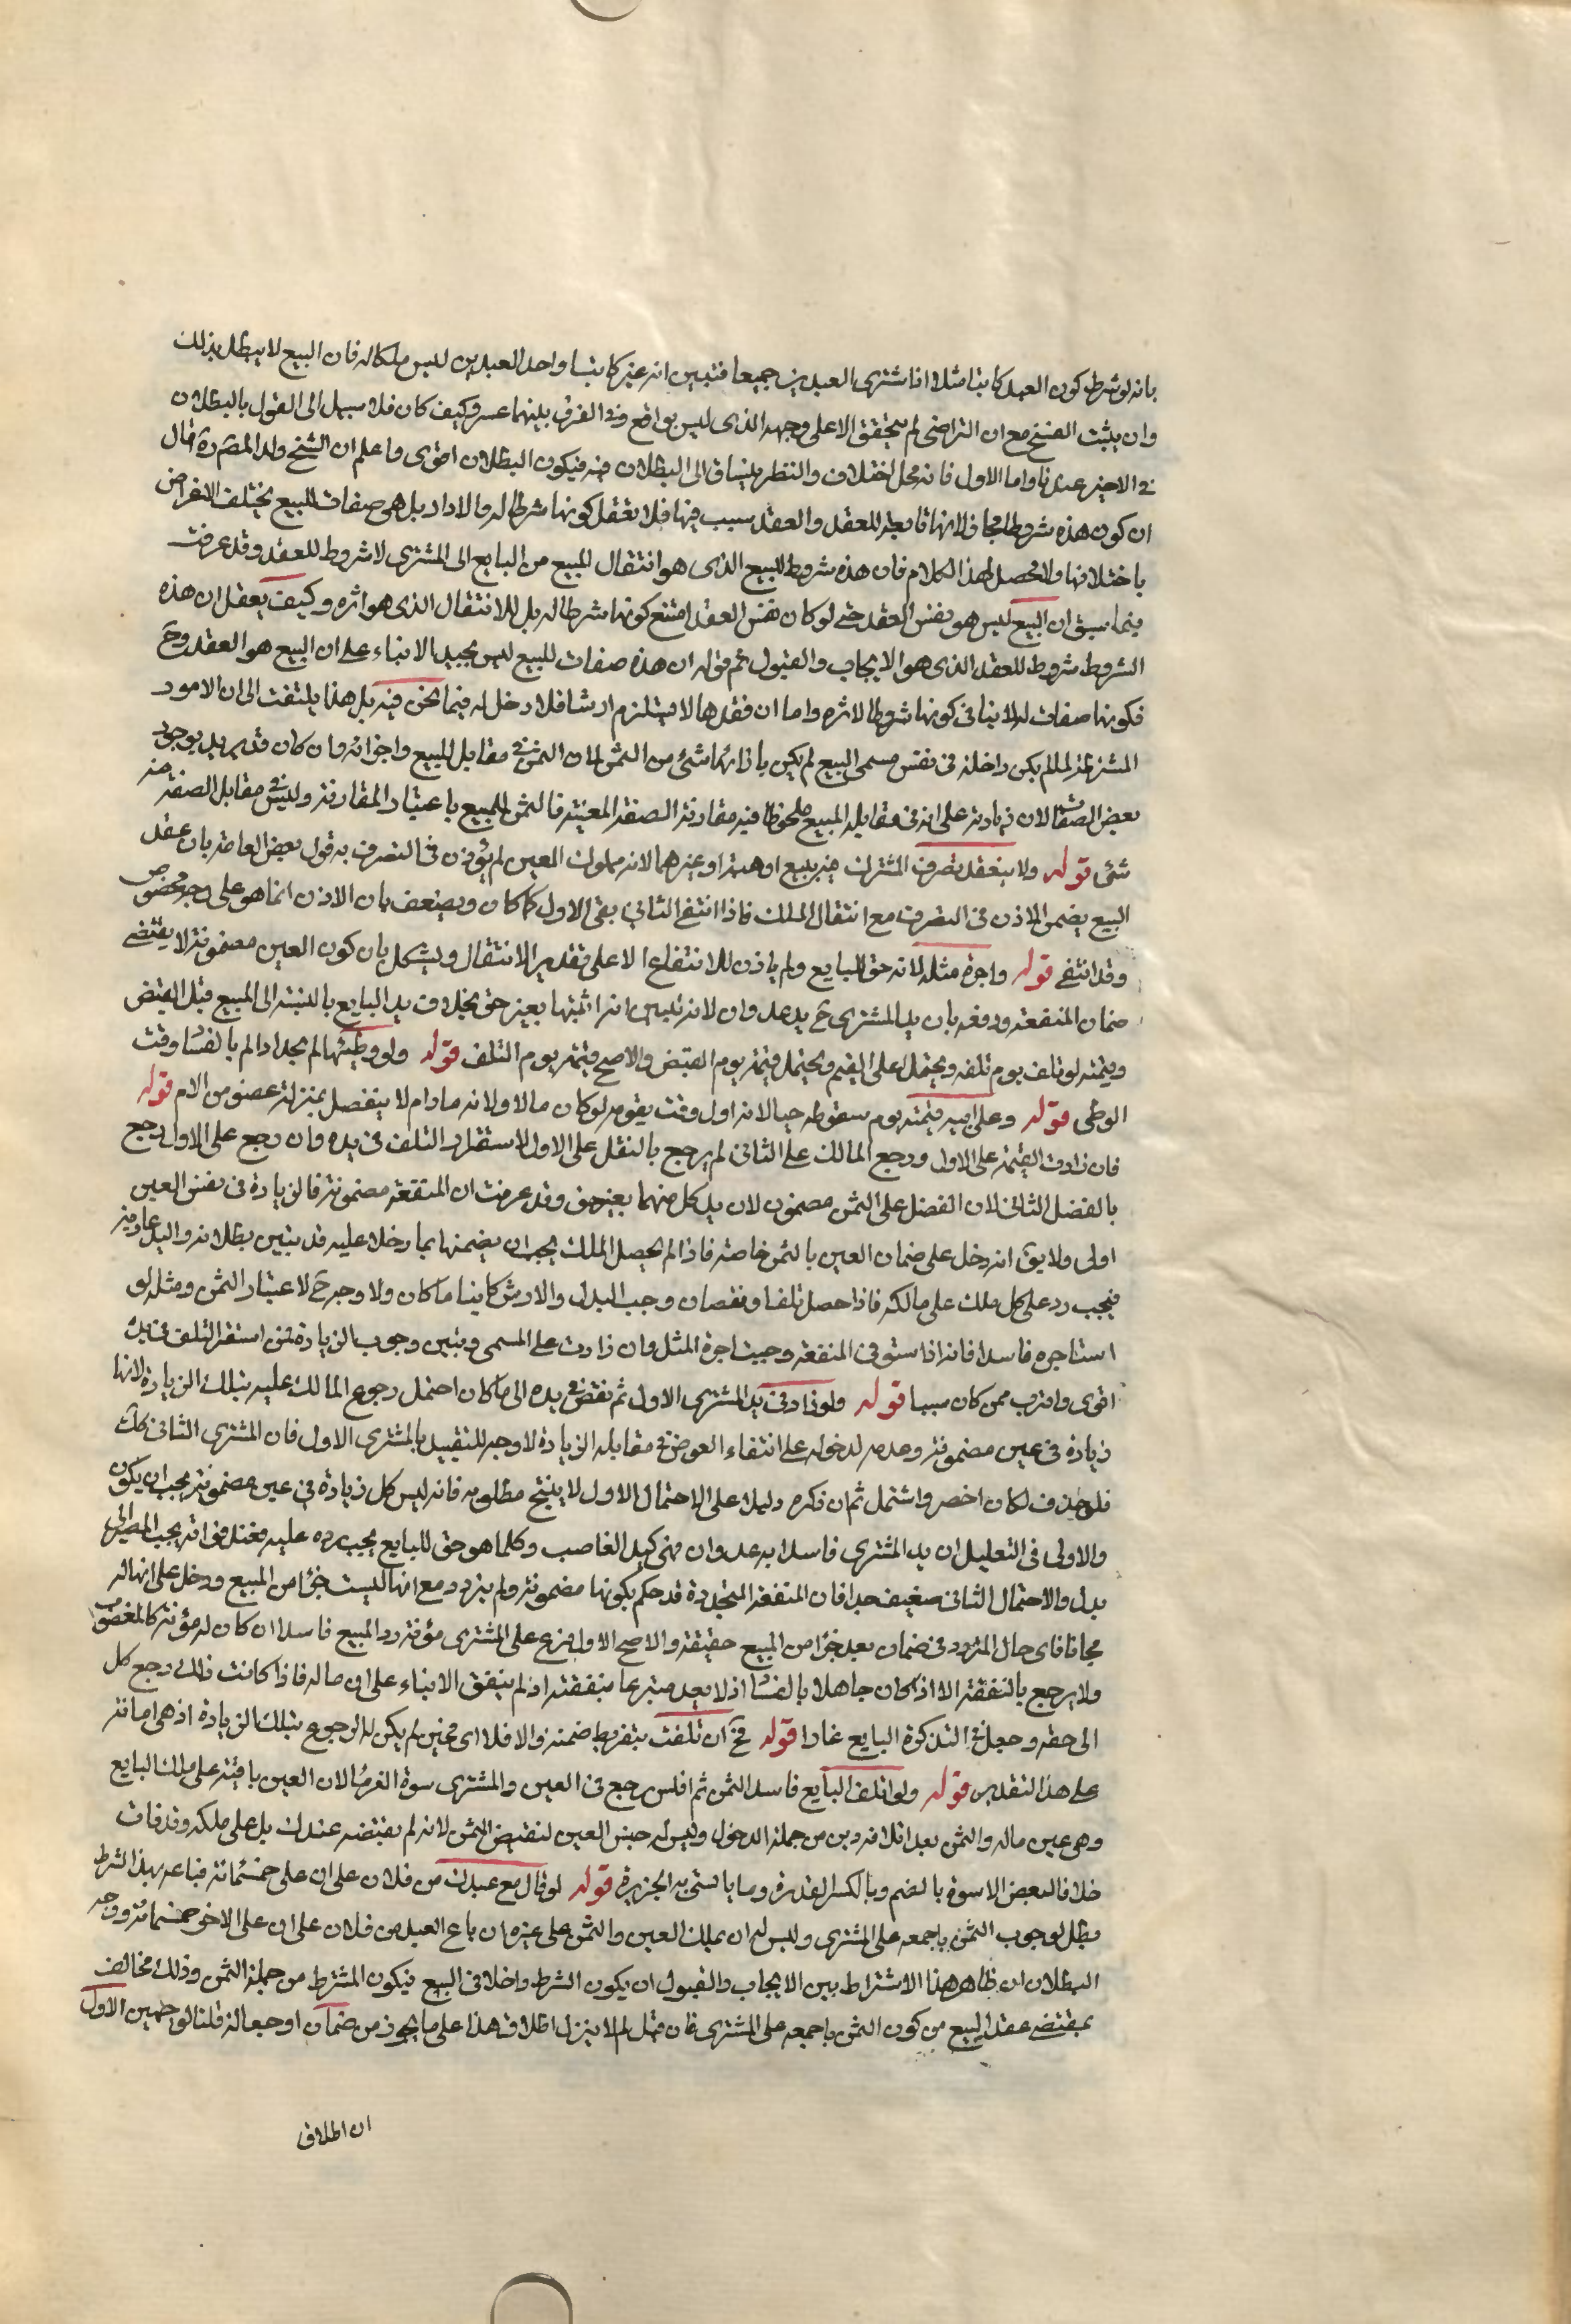 بانه لو شرط كون العبد كاتبا مثلا اذا اشترى العبدين جميعا فتبين انه غير كاتب او احد العبدين ليس ملكا له فان البيع لا يبطل بذلك
وان يثبت الفسخ مع ان التراضى لم يتحقق الا على وجهه الذى ليس بواقع وفى الفرق بينهما عسر وكيف كان فلا سبيل الى القول بالبطلان
فى الاخير عندنا واما الاول فانه محل اختلاف والنظر ينساق الى البطلان فيه فيكون البطلان اقوى واعلم ان الشيخ ولد المصنف ره قال
ان كون هذه شروطا مجاز لانها تابعة للعقد والعقد سبب فيها فلا تعقل كونها شرطا له والا دار بل هى صفات للبيع يختلف الاغراض
باختلافها ولا محصل لهذا الكلام فان هذه شروط للبيع الذى هو انتقال المبيع من البايع الى المشترى لا شروط للعقد وقد عرفت
فيما سبق ان البيع ليس هو نفس العقد حتى لو كان نفس العقد امتنع كونها شرطا له بل للانتقال الذى هو اثره وكيف يعقل ان هذه
الشروط شروط للعقد الذى هو الايجاب والقبول ثم قوله ان هذه صفات للبيع ليس بجيد الا بناء على ان البيع هو العقد وح
فكونها صفات له لا ينافى كونها شروطا لاثره واما ان فقدها لا يستلزم ارشا فلا دخل له فيما نحن فيه بل هذا يلتفت الى ان الامور
المشترطة لما لم يكن داخلة فى نفس مسمى المبيع لم يكن بازائها شئ من الثمن لان الثمن فى مقابل المبيع واجزائه وان كان قد يزيد بوجود
بعض الصفات الا ان زيادته على انه فى مقابلة المبيع ملحوظا فيه مقارنة الصفة المعينة فالثمن للمبيع باعتبار المقارنة وليس فى مقابل الصفة منه
شئ قوله ولا ينعقد تصرف المشترى فيه ببيع او هبة او غيرهما لانه مملوك الغير لم يؤذن فى التصرف به قول بعض العامة بان عقد
البيع يضمن الاذن فى التصرف مع انتقال الملك فاذا انتفى الثانى بقى الاول كما كان ويضعف بان الاذن انما هو على وجه مخصوص
وقد انتفى قوله واجرة مثله لانه حق البايع ولم ياذن للانتفاع الا على تقدير الانتقال ويشكل بان كون العين مضمونة لا يقتضى
ضمان المنفعة ودفعه بان يد المشترى ح يد عدوان لانه تبين انه اثبتها بغير حق بخلاف يد البايع بالنسبة الى المبيع قبل القبض
وقيمته لو تلف يوم تلفه ويحتمل اعلى القيم ويحتمل قيمته يوم القبض والاصح قيمته يوم التلف قوله ولو وطئها لم يحد اذا لم بالفساد وقت
الوطى قوله وعلى ابيه قيمته يوم سقوطه حيا لانه اول وقت يقوم لو كان مالا ولانه ما دام لا ينفصل بمنزلة عضو من الام قوله
فان زادت القيمة على الاول ورجع المالك على الثانى لم يرجع بالنقل على الاول لاستقرار التلف فى يده وان رجع على الاول رجع
بالفضل الثانى لان الفضل على الثمن مضمون لان يد كل منهما بغير حق وقد عرفت ان المنفعة مضمونة فالزيادة فى نفس العين
اولى ولا يق انه دخل على ضمان العين بالثمن خاصة فاذا لم يحصل الملك يجب ان يضمنها بما دخلا عليه قد يتبين بطلانه واليد عادية
فيجب رد على كل ملك على مالكه فاذا حصل تلف او نقصان وجب البدل والارش كائنا ما كان ولا وجه ح لاعتبار الثمن ومثله لو
استاجره فاسدا فانه اذا استوفى المنفعة وجبت اجرة المثل وان زادت على المسمى وتبين وجوب الزيادة لمن استقر التلف فى يده
اقوى واقرب ممن كان سببا قوله ولو زاد فى يد المشترى الاول ثم نقص فى يده الى ما كان احتمل رجوع المالك عليه بتلك الزيادة لانها
زيادة فى عين مضمونة وعدمه لدخوله على انتفاء العوض فى مقابلة الزيادة لا وجه للتقييد بالمشترى الاول فان المشترى الثانى كك
فلو حذف لكان اخصر واشمل ثم ان ذكره دليلا على الاحتمال الاول لا ينتج مطلوبه فانه ليس كل زيادة فى عين مضمونة يجب ان يكون
والاولى فى التعليل ان يد المشترى فاسدا يد عدوان فهى كيد الغاصب وكلما هو حق للبايع يجب رده عليه فعند فواته يجب المصير الى
بدله والاحتمال الثانى ضعيف جدا فان المنفعة المتجددة قد حكم بكونها مضمونة ولم يتردد مع انها ليست جزءا من المبيع ودخل على انها له
مجانا فاى حال المتردد فى ضمان بعد جزءا من المبيع حقيقة والاصح الاول فرع على المشترى مؤنة رد المبيع فاسدا ان كان له مؤنة كالمغصوب
ولا يرجع بالنفقة الا اذا كان جاهلا بالفساد اذ لا يعد متبرعا بنفقته اذ لم ينفق الا بناء على انه ماله فاذا كانت فالى رجع كل
الى حقه وجعل فى التذكرة البايع غارا قوله فح ان تلفت بتفريط ضمنه والا فلا اى فحين لم يكن له الرجوع بتلك الزيادة اذ هى امانة
على هذا التقدير قوله ولو اتلف البايع فاسدا الثمن ثم افلس رجع فى العين والمشترى سوة الغرماء لان العين باقية على ملك البايع
وهى عين ماله والثمن بعد اتلافه دين من جملة الديون وليس له حبس العين لتقبيض الثمن لانه لم يقبضه عندك بل على ملكه وقد فات
خلافا لبعض الاسوة بالضم وبالكسر القدوة وما ياتسى به الحزين قوله لو قال بع عبدك من فلان على ان على خمسمائة فباعه بهذا الشرط
بطل لوجوب الثمن باجمعه على المشترى وليس له ان يملك العين والثمن على غيره ان باع العبد من فلان على ان على الاخر خمسمائة ووجه
البطلان ان ظاهر هذا الاشتراط بين الايجاب والقبول ان يكون الشرط داخلا فى البيع فيكون المشترط من جملة الثمن وذلك مخالف
بمقتضى عقد البيع من كون الثمن باجمعه على المشترى فان قيل لم لا ينزل اطلاق هذا على ما يجوز من ضمان او جعالة قلنا لوجهين الاول
ان اطلاق